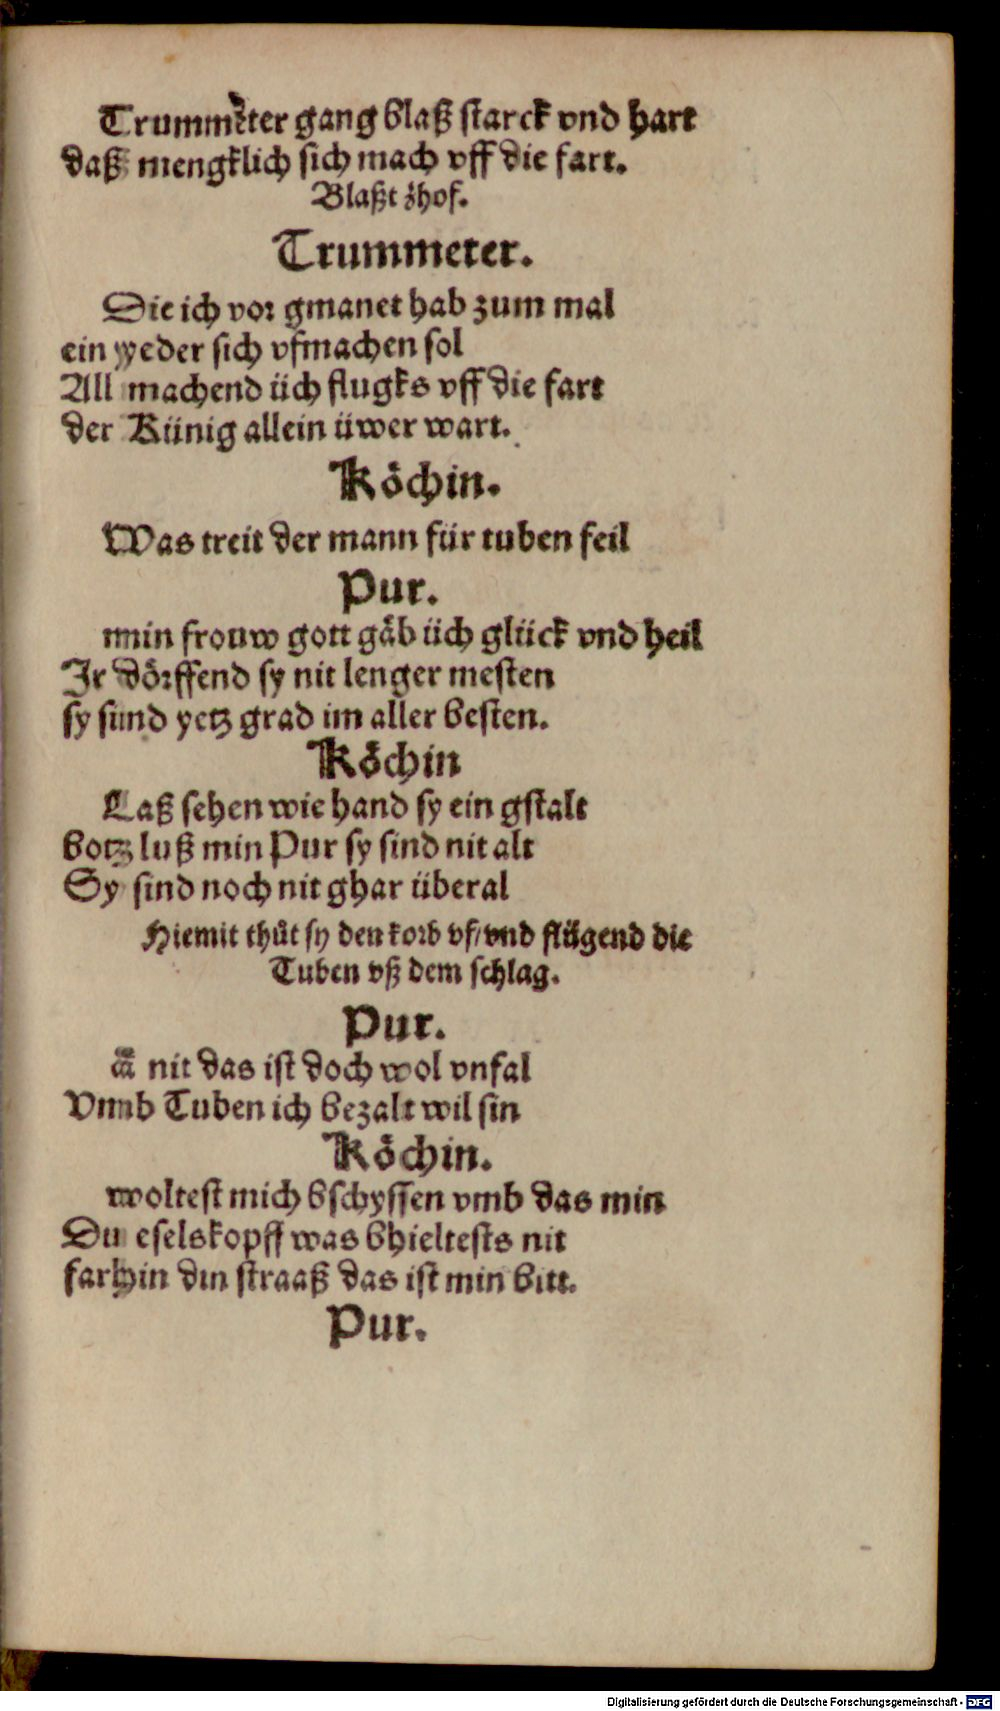 Trummeter gang blaß starck vnd hart
daß mengklich sich mach vff die fart.
Blaßt zhof.
Trummeter.
Die ich vor gmanet hab zum mal
ein yeder sich vfmachen sol
All machend üch flugks vff die fart
der Künig allein üwer wart.
Köchin.
Was treit der mann für tuben feil
Pur.
min frouw gott gäb üch glück vnd heil
Jr dörffend sy nit lenger mesten
sy sind yetz grad im aller besten.
Köchin
Laß sehen wie hand sy ein gstalt
botz luß min Pur sy sind nit alt
Sy sind noch nit ghar überal
Hiemit thůt sy den korb vf/vnd flügend die
Tuben vß dem schlag.
Pur.
nit das ist doch wol vnfal
Vmb Tuben ich bezalt wil sin
Köchin.
woltest mich bschyssen vmb das min
Du eselskopff was bhieltests nit
farhin din straaß das ist min bitt.
Pur.
Digitalisierung gefördert durch die Deutsche Forschungsgemeinschaft - DFG